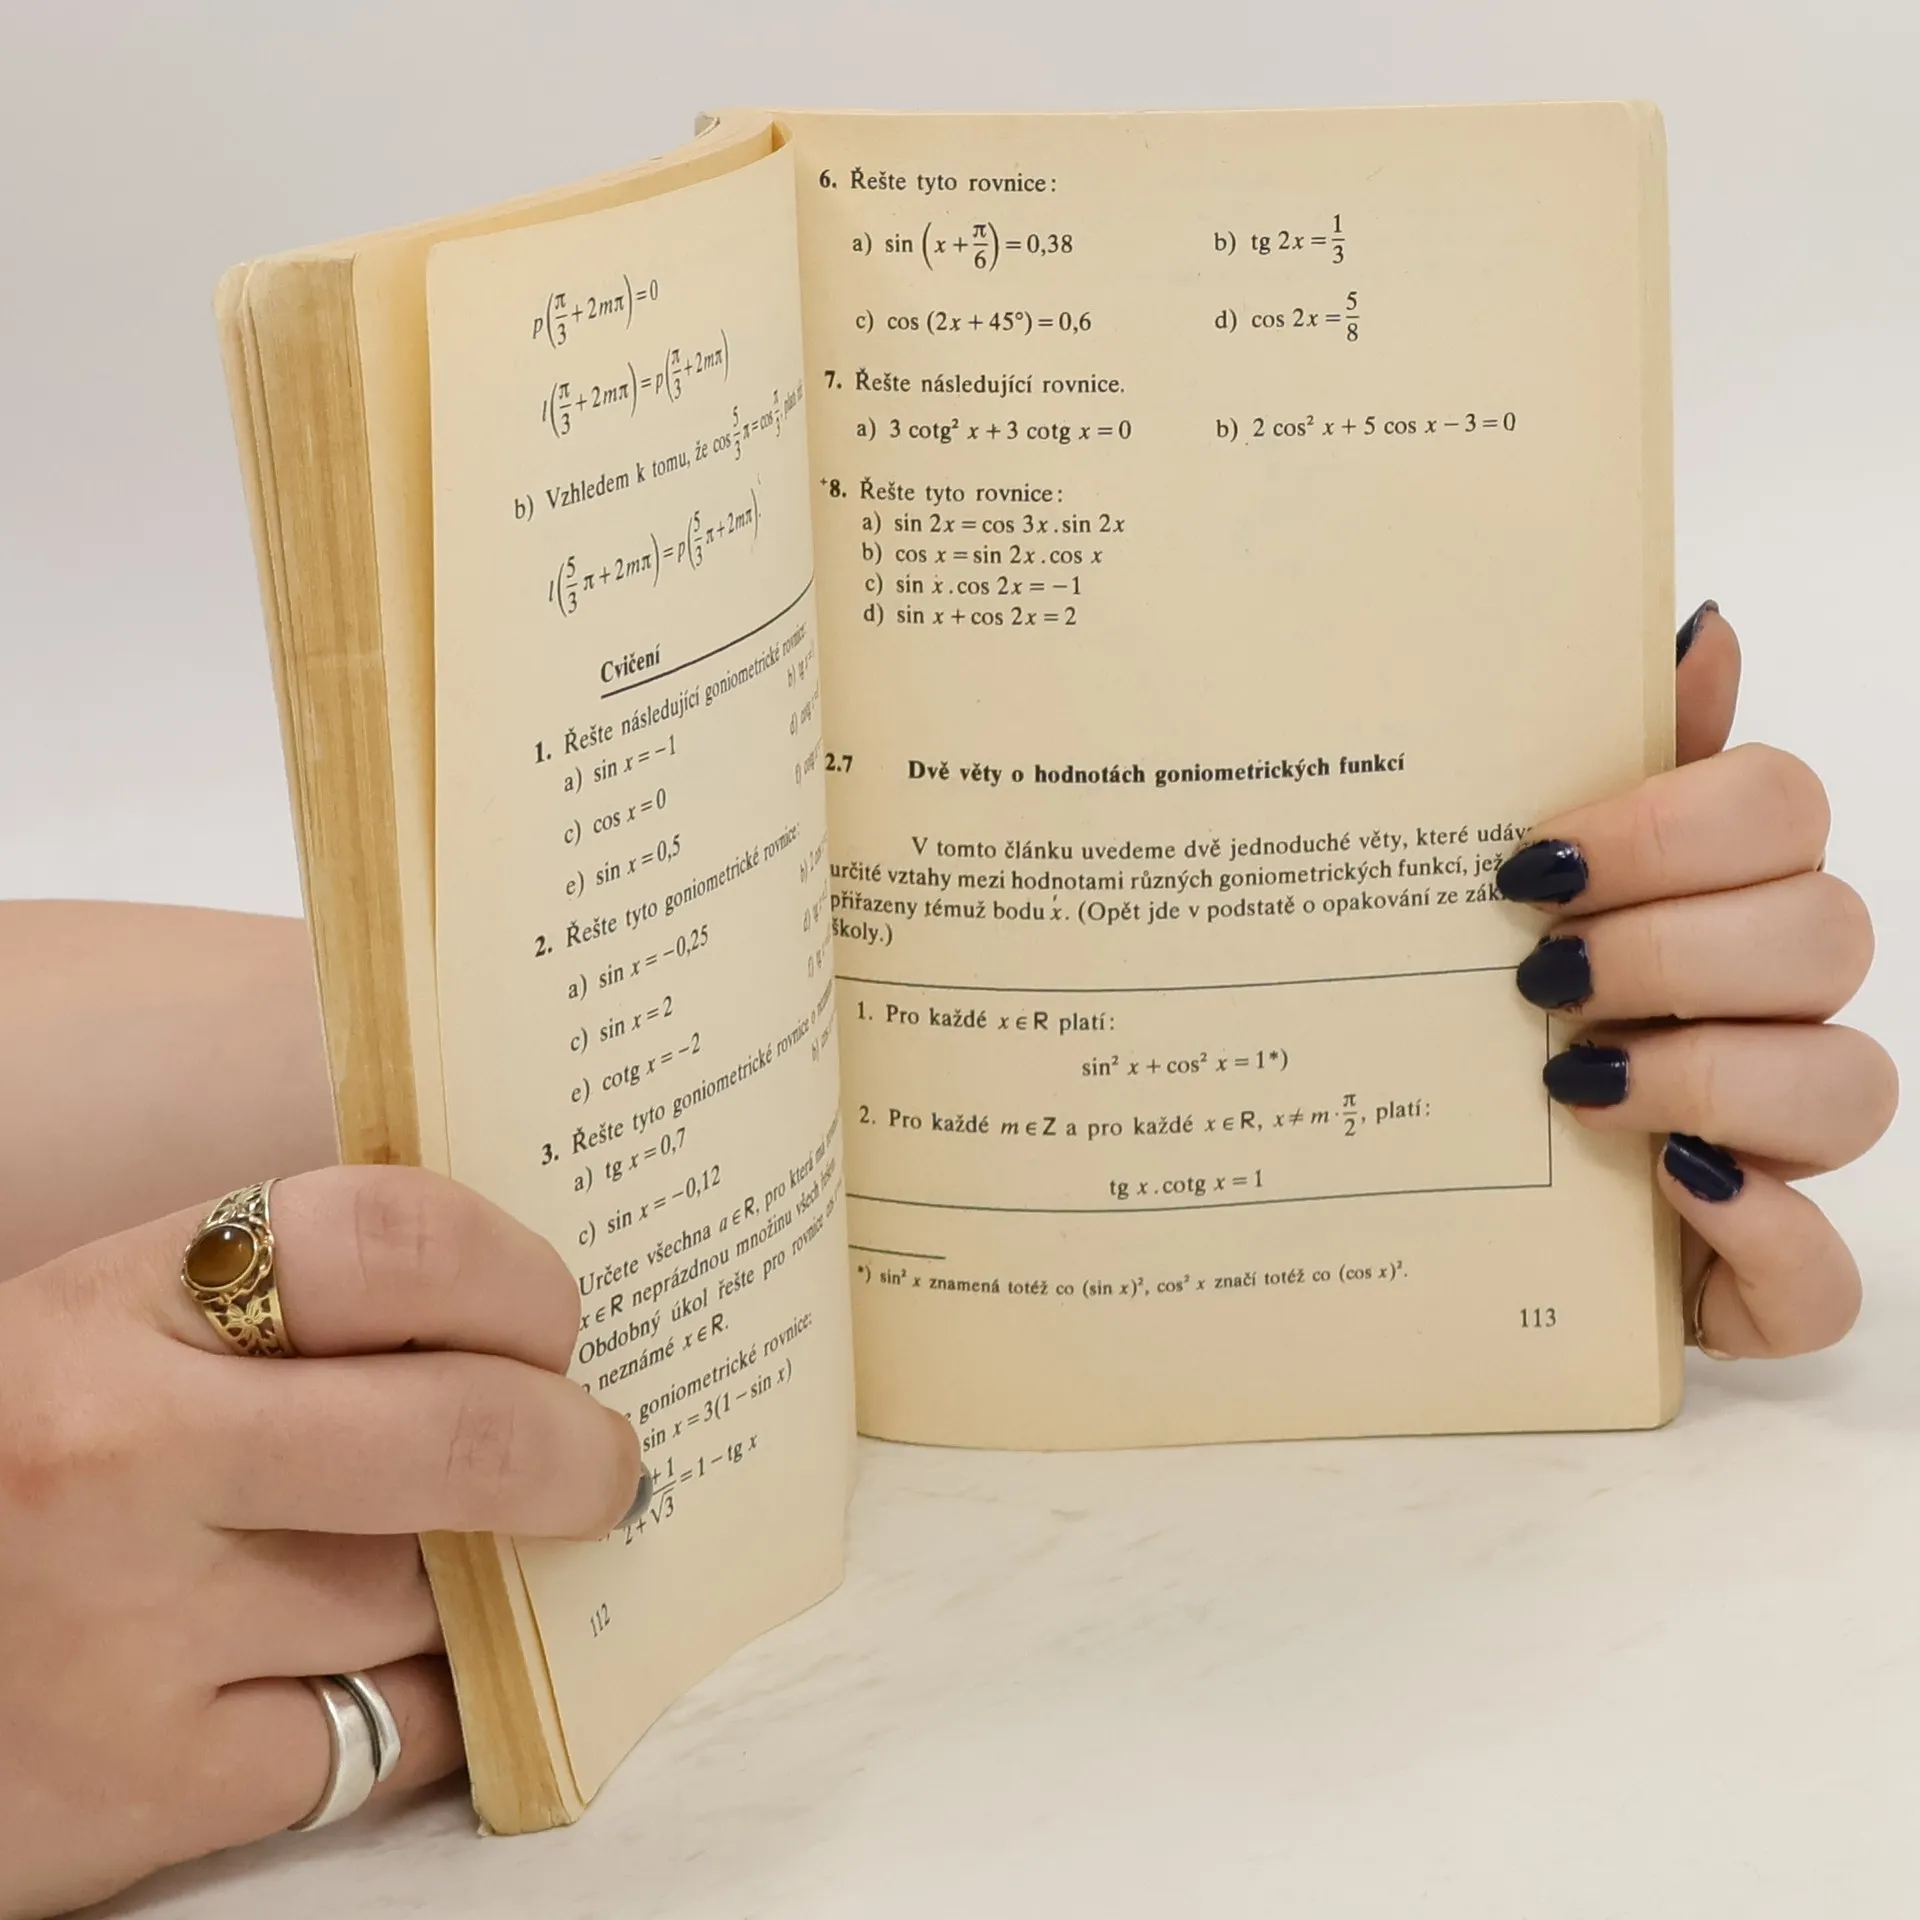 p(π/3+2mπ)=0
l(π/3+2mπ)=p(π/3+2mπ)
b) Vzhledem k tomu, že cos 5/3 π=cos π/3, platí
l(5/3 π+2mπ)=p(5/3 π+2mπ).
Cvičení
1. Řešte následující goniometrické rovnice:
a) sin x=−1
c) cos x=0
e) sin x=0,5
2. Řešte tyto goniometrické rovnice:
a) sin x=−0,25
c) sin x=2
e) cotg x=−2
3. Řešte tyto goniometrické rovnice o
a) tg x=0,7
c) sin x=−0,12
Určete všechna a∈R, pro která má
x∈R neprázdnou množinu všech řešení.
Obdobný úkol řešte pro rovnice
neznámé x∈R.
goniometrické rovnice:
sin x=3(1−sin x)
+1/2+√3=1−tg x
112
6. Řešte tyto rovnice:
a) sin (x+π/6)=0,38 b) tg 2x=1/3
c) cos (2x+45°)=0,6 d) cos 2x=5/8
7. Řešte následující rovnice.
a) 3 cotg² x+3 cotg x=0 b) 2 cos² x+5 cos x−3=0
+8. Řešte tyto rovnice:
a) sin 2x=cos 3x.sin 2x
b) cos x=sin 2x.cos x
c) sin x.cos 2x=−1
d) sin x+cos 2x=2
2.7 Dvě věty o hodnotách goniometrických funkcí
V tomto článku uvedeme dvě jednoduché věty, které
určité vztahy mezi hodnotami různých goniometrických funkcí,
přiřazeny témuž bodu x. (Opět jde v podstatě o opakování ze
školy.)
1. Pro každé x∈R platí:
sin² x+cos² x=1*)
2. Pro každé m∈Z a pro každé x∈R, x≠m·π/2, platí:
tg x.cotg x=1
*) sin² x znamená totéž co (sin x)², cos² x značí totéž co (cos x)².
113